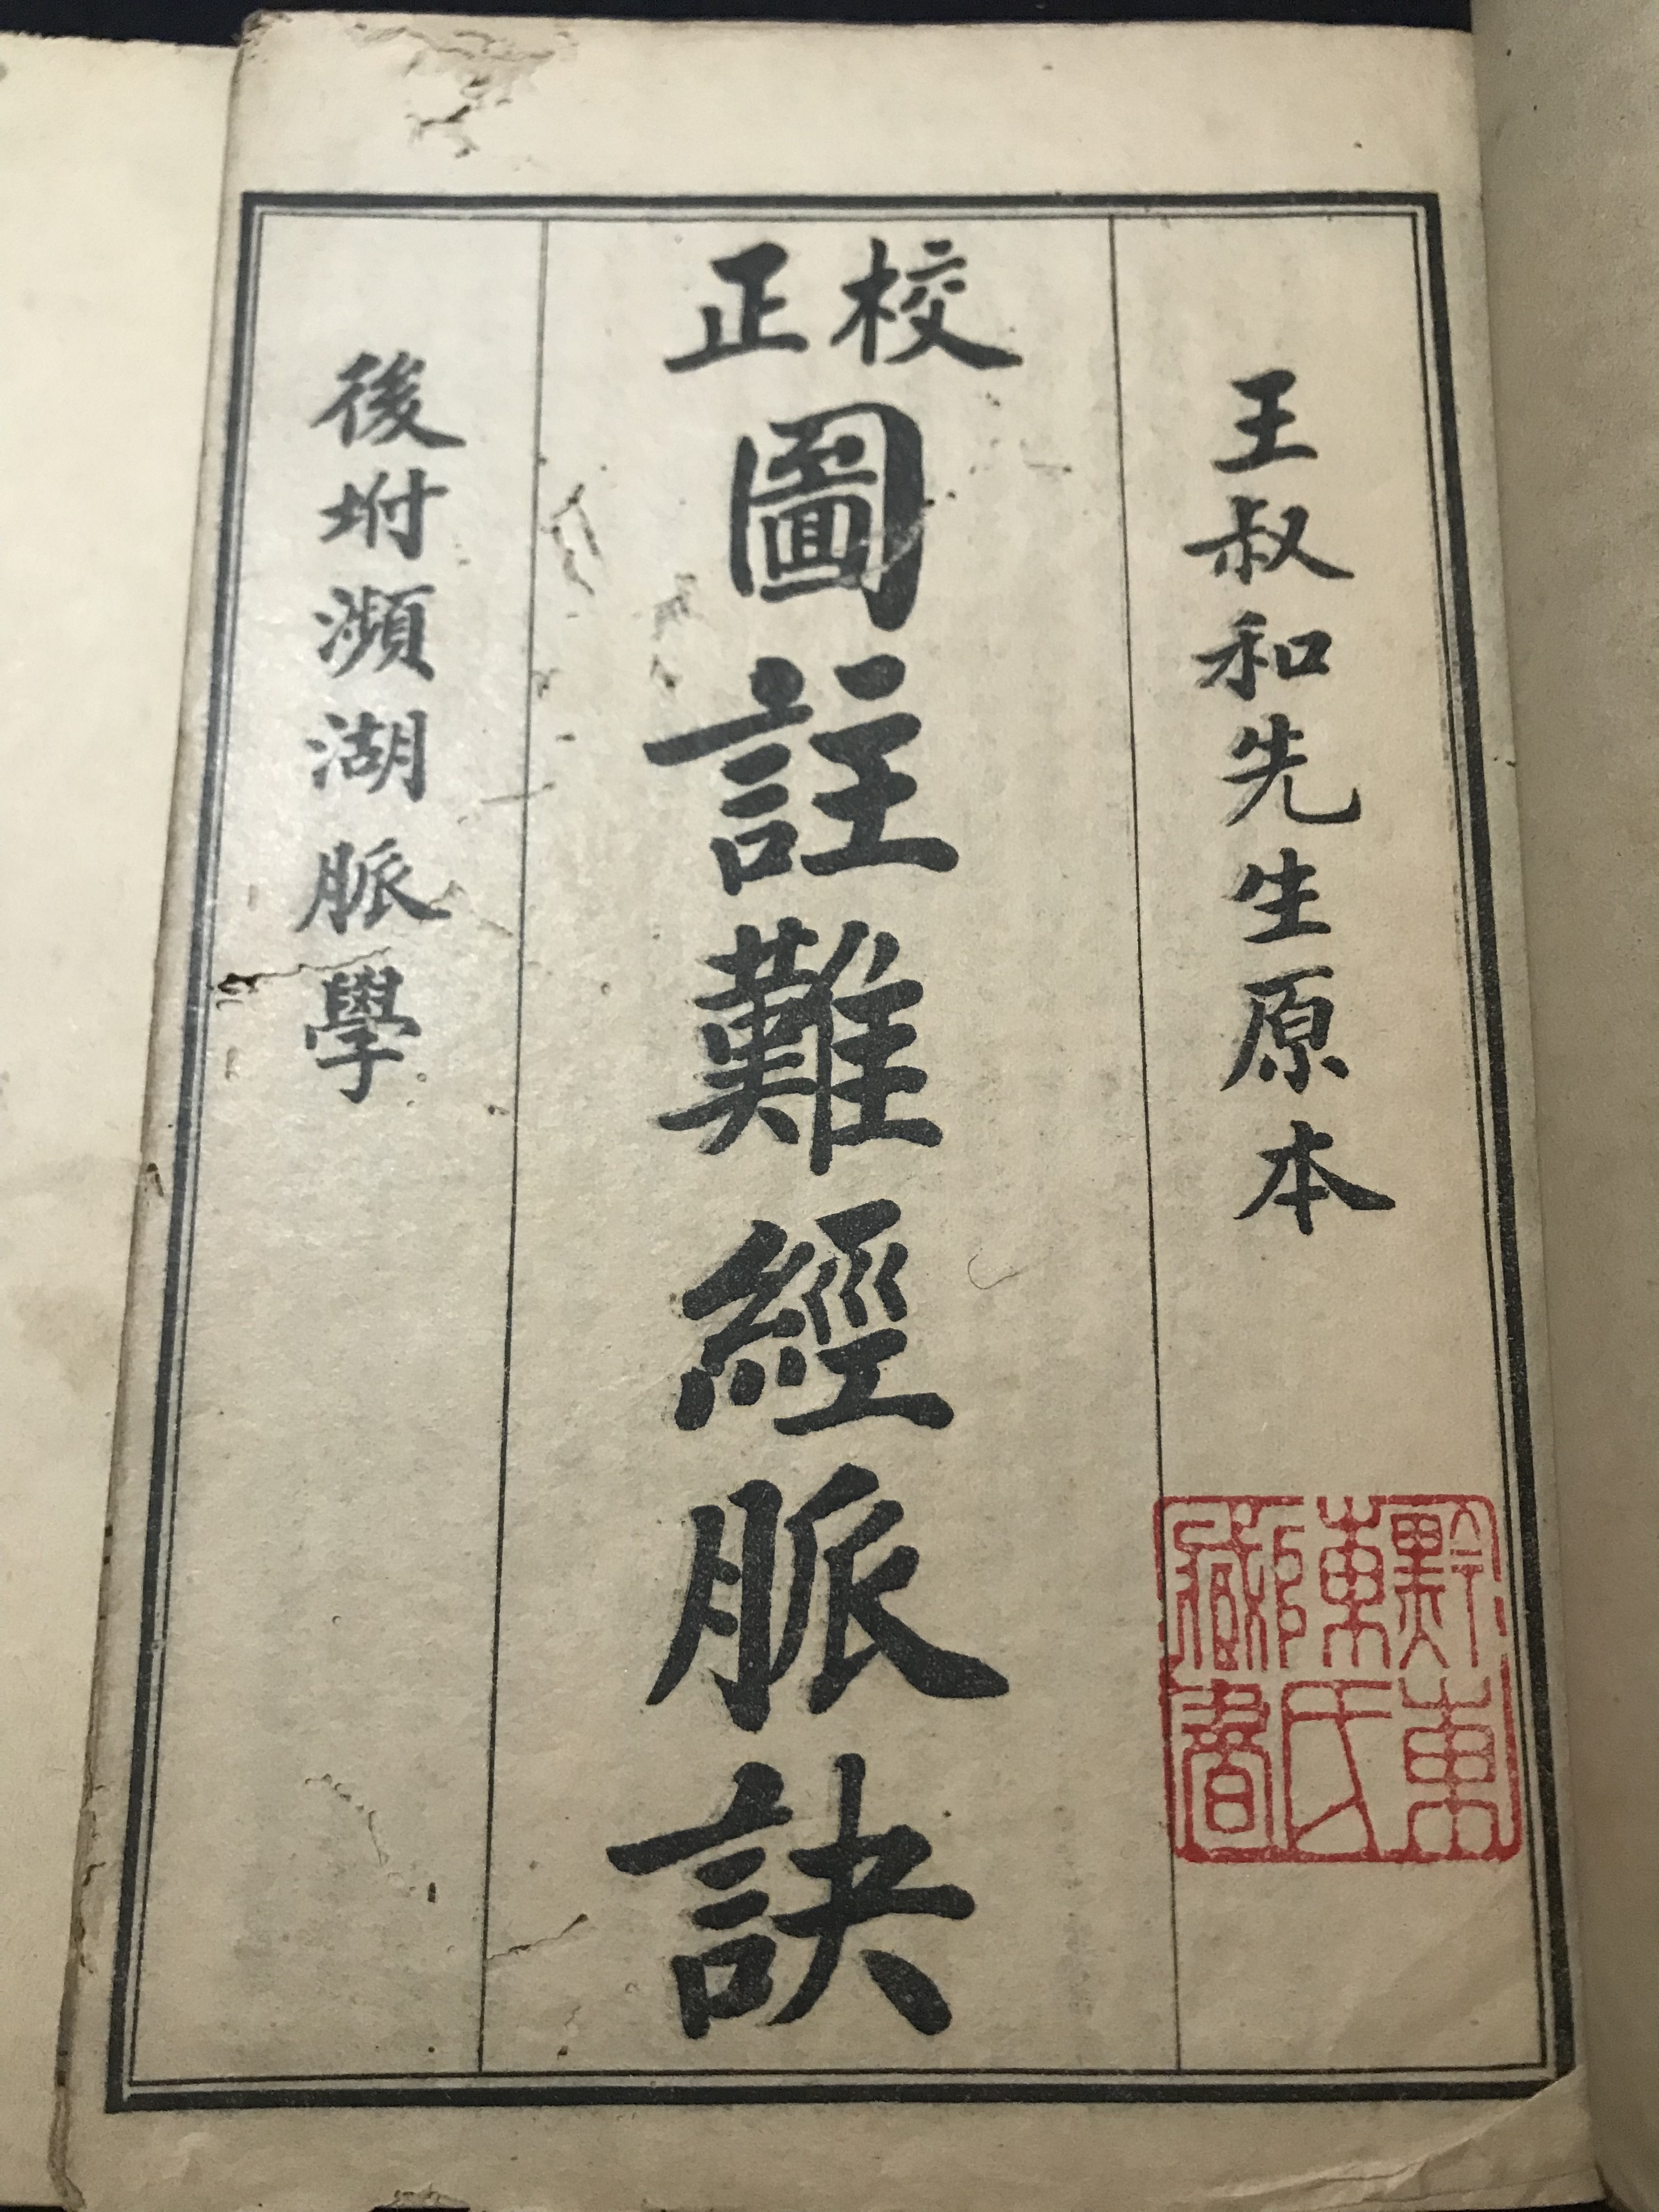 王叔和先生原本
校正
圖註難經脈訣
後坿瀕湖脈學
黔東
陳氏
藏書